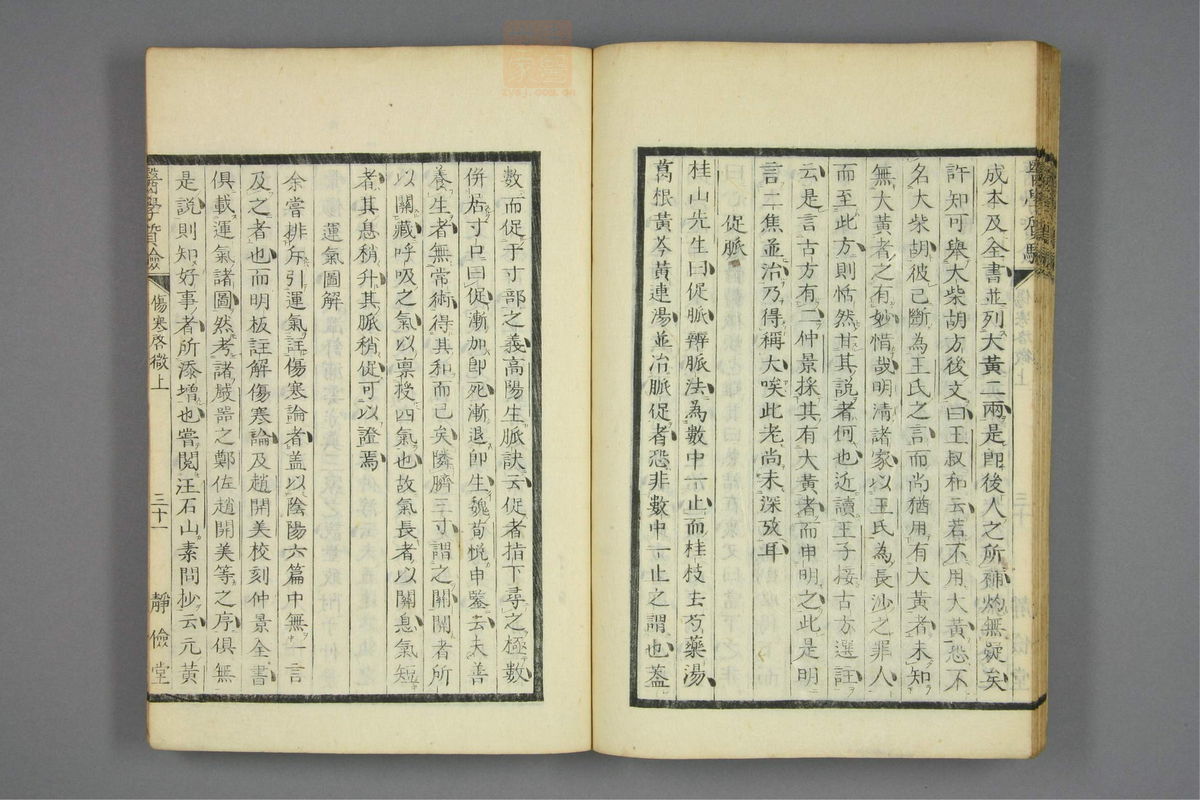 成本及全書並列大黃二兩是卽後人之所補灼無疑矣
許知可舉大柴胡方後文曰王叔和云若不用大黃恐不
名大柴胡彼已斷為王氏之言而尚猶用有大黃者未知
無大黃者之有妙惜哉明清諸家以王氏為長沙之罪人
而至此方則恬然甘其說者何也近讀王子接古方選註
云是言古方有二仲景採其有大黃者而申明之此是明
言二焦並治乃得稱大唉此老尚未深攷耳
促脈
桂山先生曰促脈辨脈法為數中一止而桂枝去芍藥湯
葛根黃芩黃連湯並冶脈促者恐非數中一止之謂也蓋
數而促于寸部之義高陽生脈訣云促者指下尋之極數
倂居寸口曰促漸加卽死漸退卽生魏荀悅申鑒云夫善
養生者無常術得其和而已矣隣臍三寸謂之關關者所
以關藏呼吸之氣以稟授四氣也故氣長者以關息氣短
者其息稍升其脈稍促可以證焉
運氣圖解
余嘗排斥引運氣註傷寒論者盖以陰陽六篇中無一言
及之者也而明板註解傷寒論及趙開美校刻仲景全書
俱載運氣諸圖然考諸嚴器之鄭佐趙開美等之序俱無
是說則知好事者所添增也嘗閱汪石山素問抄云元黃
醫學質驗
傷寒啓微上
三十一
靜儉堂